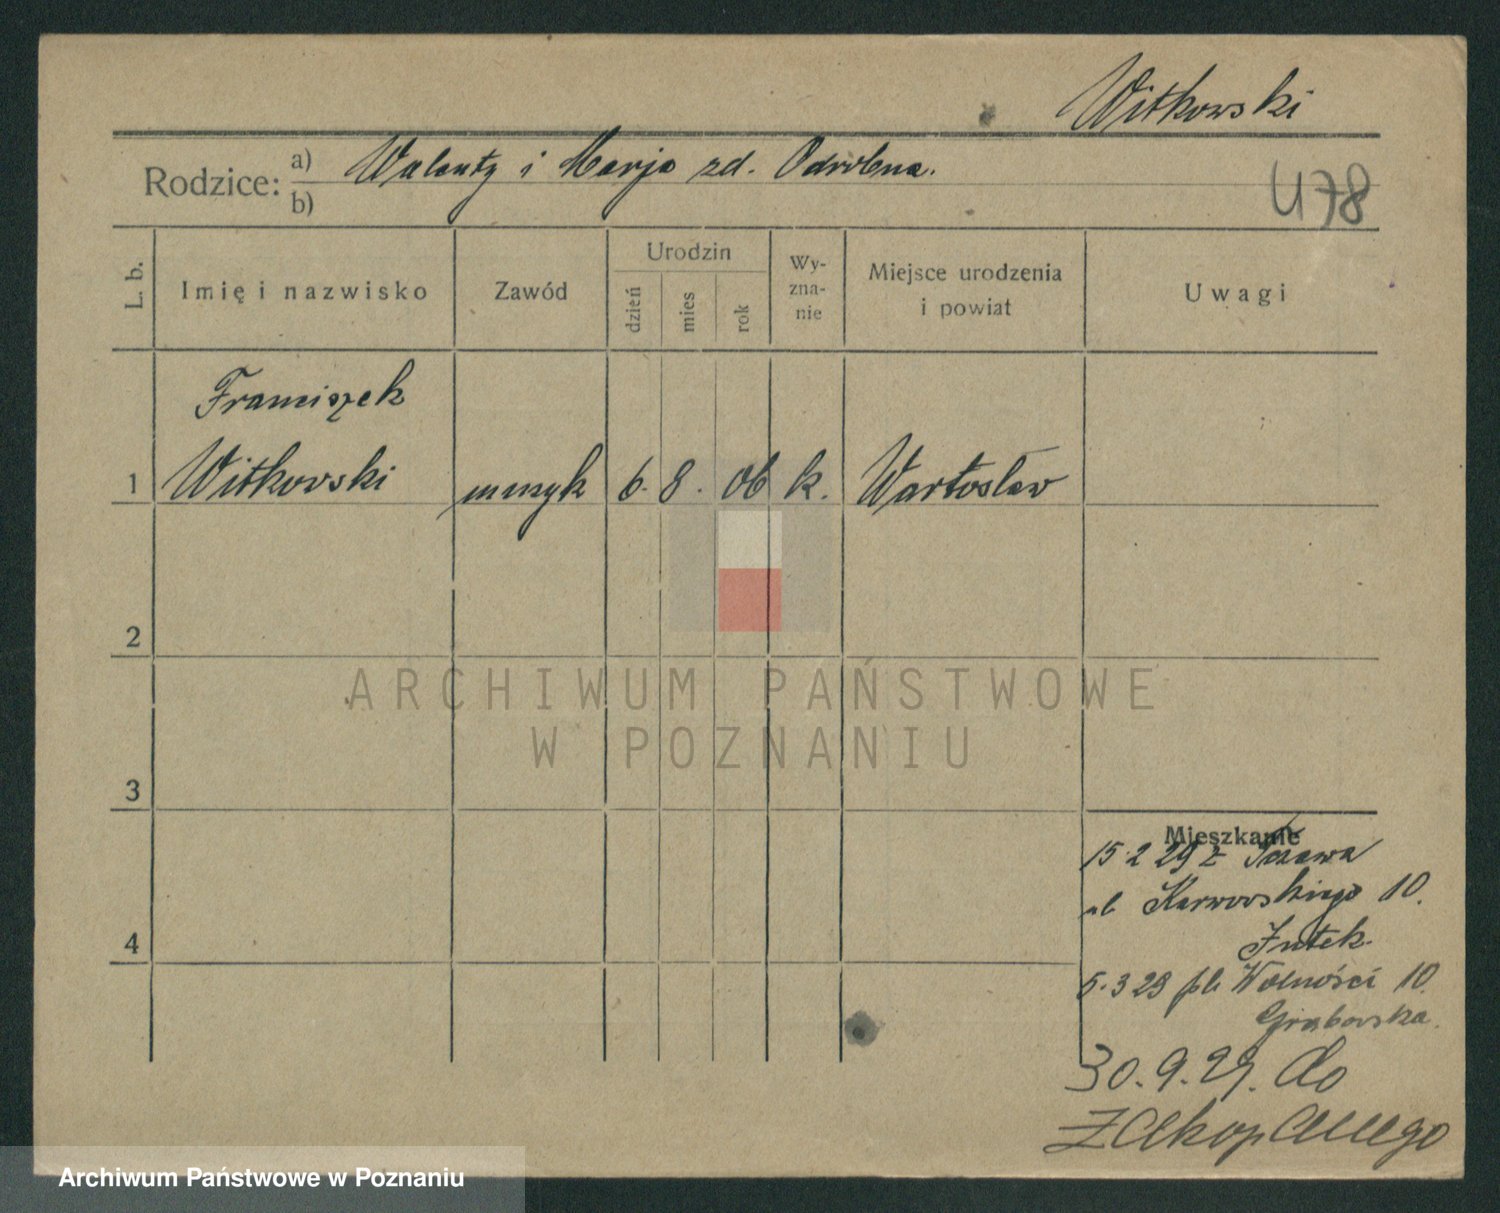 Witkowski
Rodzice: a) Walenty i Marja zd. Odrobna.
b)
478
L. b.
Imię i nazwisko
Zawód
Urodzin
dzień
mies
rok
Wy-
zna-
nie
Miejsce urodzenia
i powiat
Uwagi
Franciszek
1 Witkowski muzyk 6. 8. 06 k. Wartosław
2
3
4
Mieszkanie
15 2 29 z Tczewa
ul Karwowskiego 10.
5.3 29 pl. Wolności 10.
Grabowska.
30.9.29. do
Zakopanego
ARCHIWUM PAŃSTWOWE
W POZNANIU
Archiwum Państwowe w Poznaniu